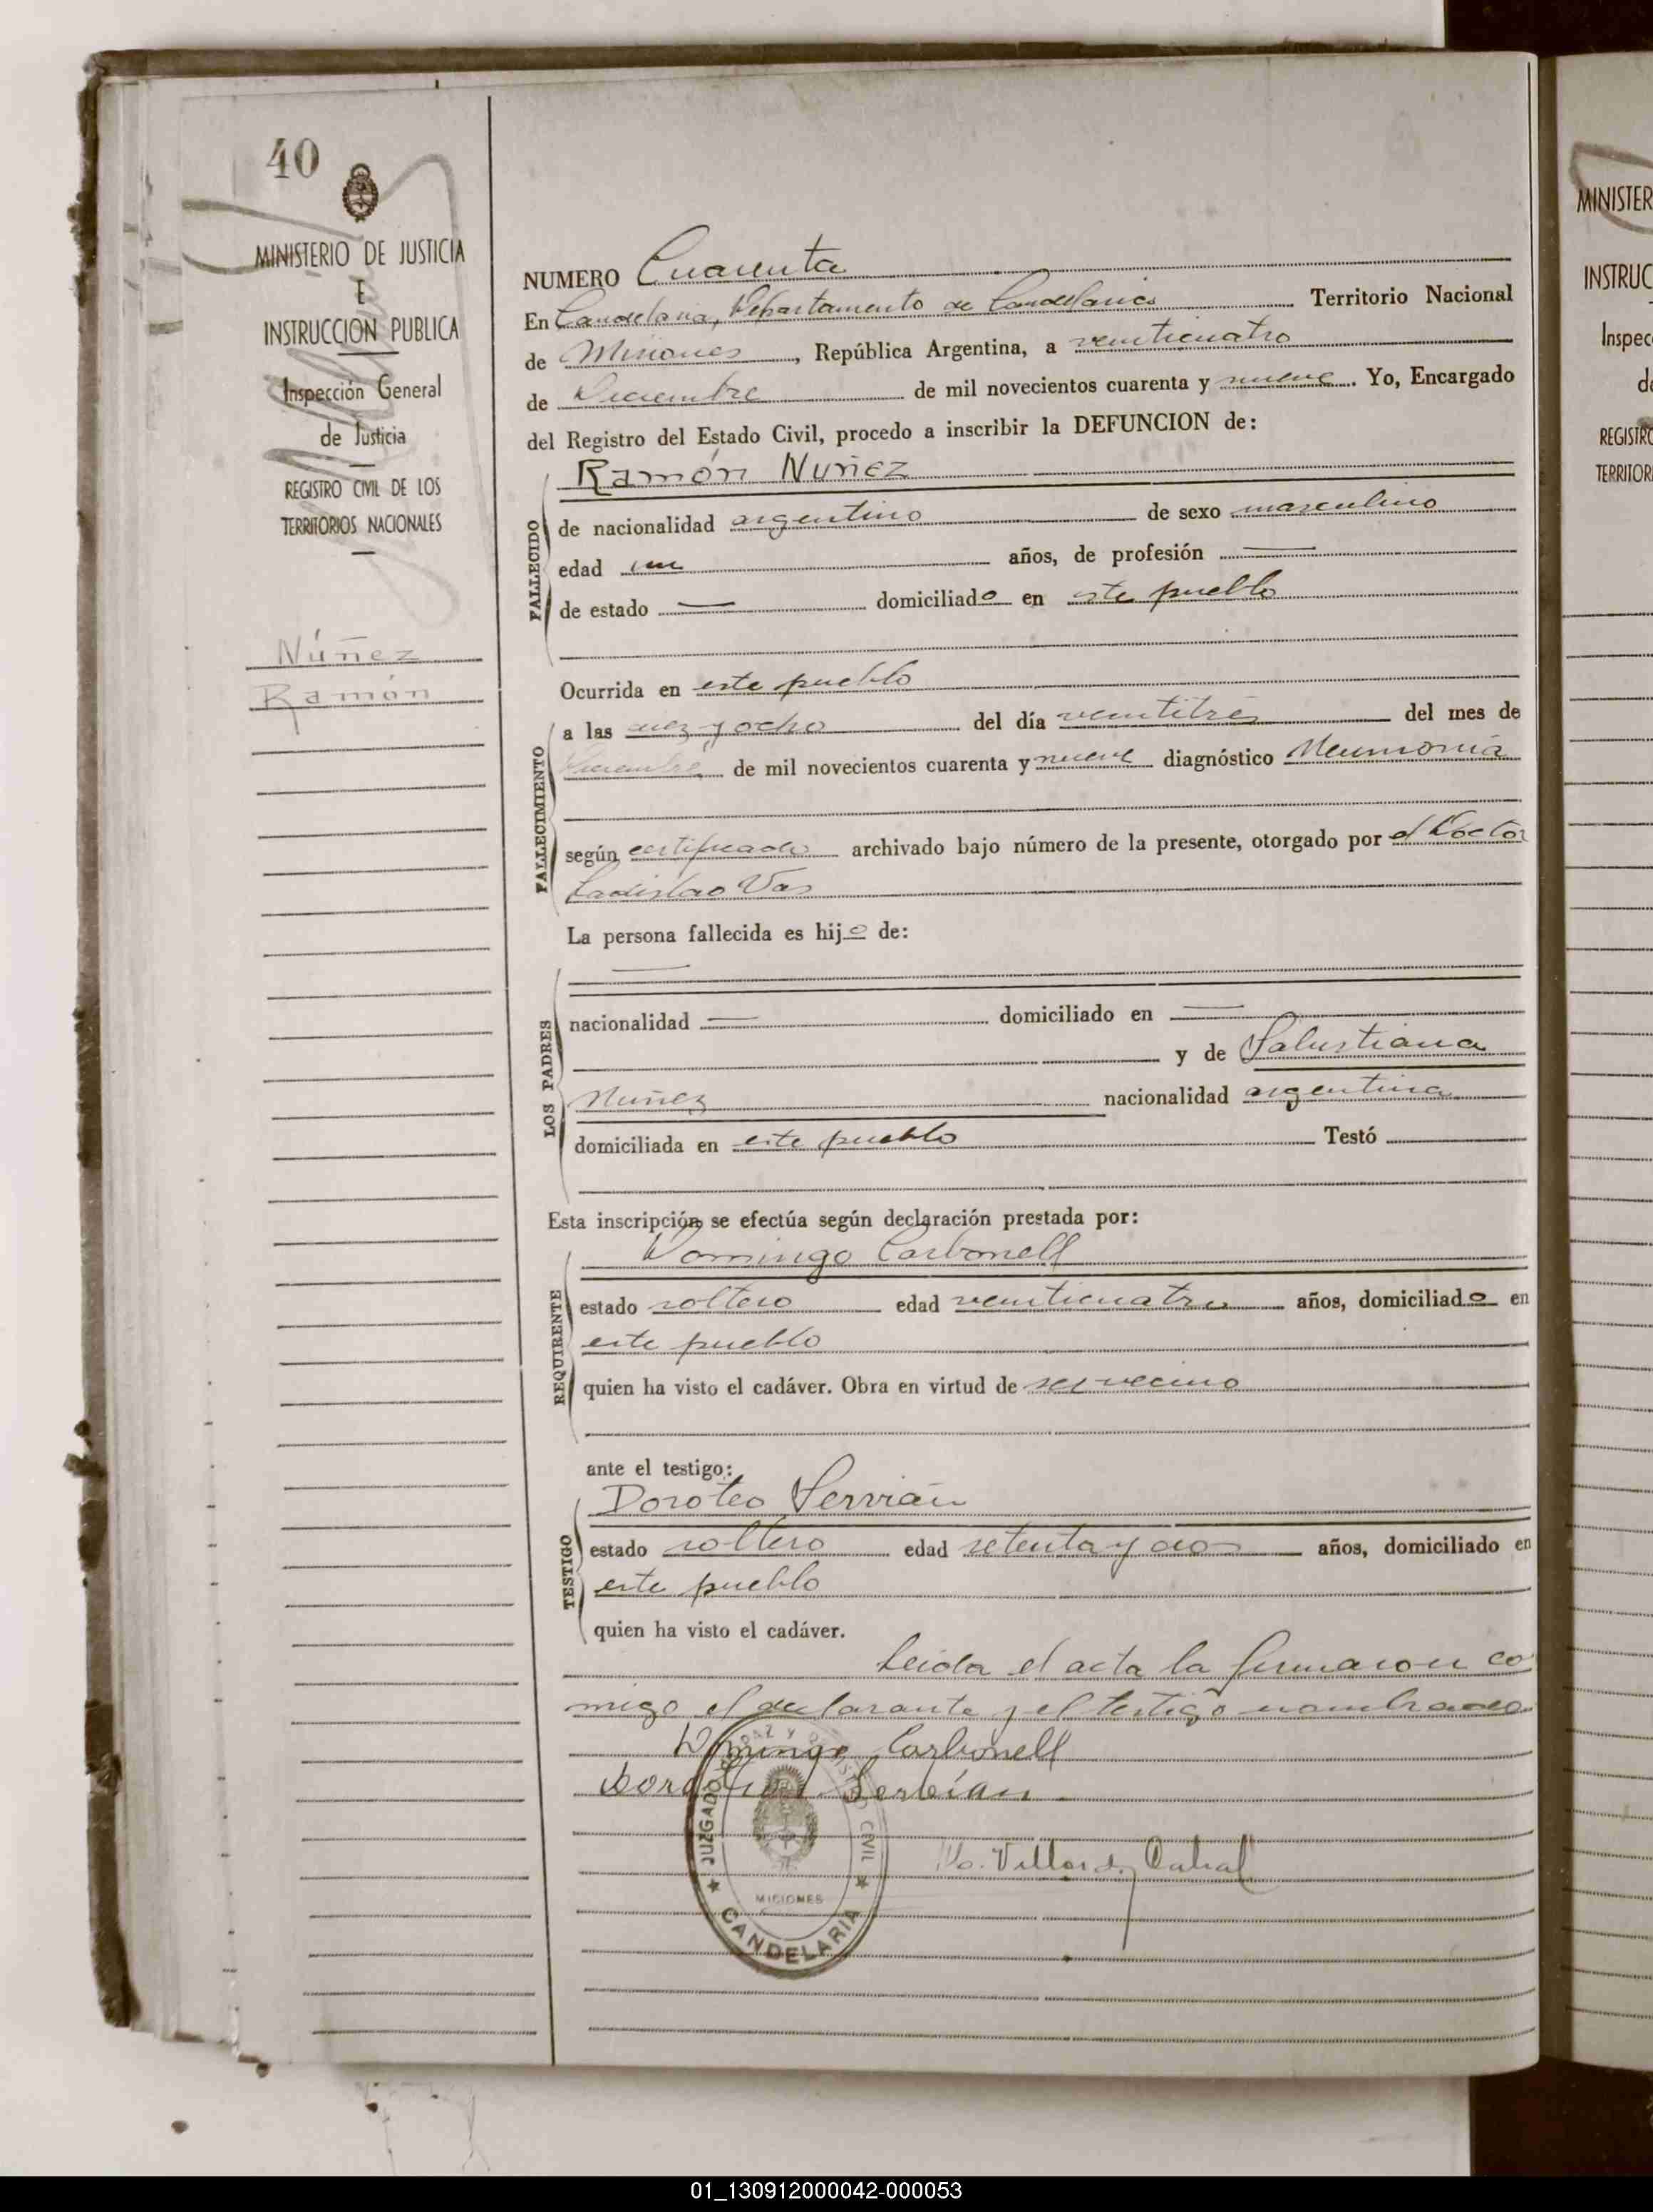 40
MINISTERIO DE JUSTICIA
E
INSTRUCCION PUBLICA
Inspección General
de Justicia
REGISTRO CIVIL DE LOS
TERRITORIOS NACIONALES
Núñez
Ramón
NUMERO Cuarenta
En Candelaria, Departamento de Candelaria Territorio Nacional
de Misiones, República Argentina, a veinticuatro
de Diciembre de mil novecientos cuarenta y nueve. Yo, Encargado
del Registro del Estado Civil, procedo a inscribir la DEFUNCION de:
Ramón Nuñez
FALLECIDO
de nacionalidad argentino de sexo masculino
edad un años, de profesión —
de estado — domiciliado en este pueblo
Ocurrida en este pueblo
FALLECIMIENTO
a las diez y ocho del día veintitres del mes de
Diciembre de mil novecientos cuarenta y nueve diagnóstico Neumonia
según certificado archivado bajo número de la presente, otorgado por el Doctor
Ladislao Vas
La persona fallecida es hijo de:
—
LOS PADRES
nacionalidad — domiciliado en —
y de Salustiana
Nuñez nacionalidad argentina
domiciliada en este pueblo Testó
Esta inscripción se efectúa según declaración prestada por:
Domingo Carbonell
REQUIRENTE
estado soltero edad veinticuatro años, domiciliado en
este pueblo
quien ha visto el cadáver. Obra en virtud de ser vecino
ante el testigo:
Doroteo Servián
TESTIGO
estado soltero edad setenta y dos años, domiciliado en
este pueblo
quien ha visto el cadáver.
Leida el acta la firmaron co
migo el declarante y el testigo nombrados
Domingo Carbonell
Doroteo Serbían
JUZGADO DE PAZ Y REGISTRO CIVIL
MICIONES
CANDELARIA
Cabral
MINISTER
INSTRUC
Inspec
de
REGISTRO
TERRITOR
01_130912000042-000053